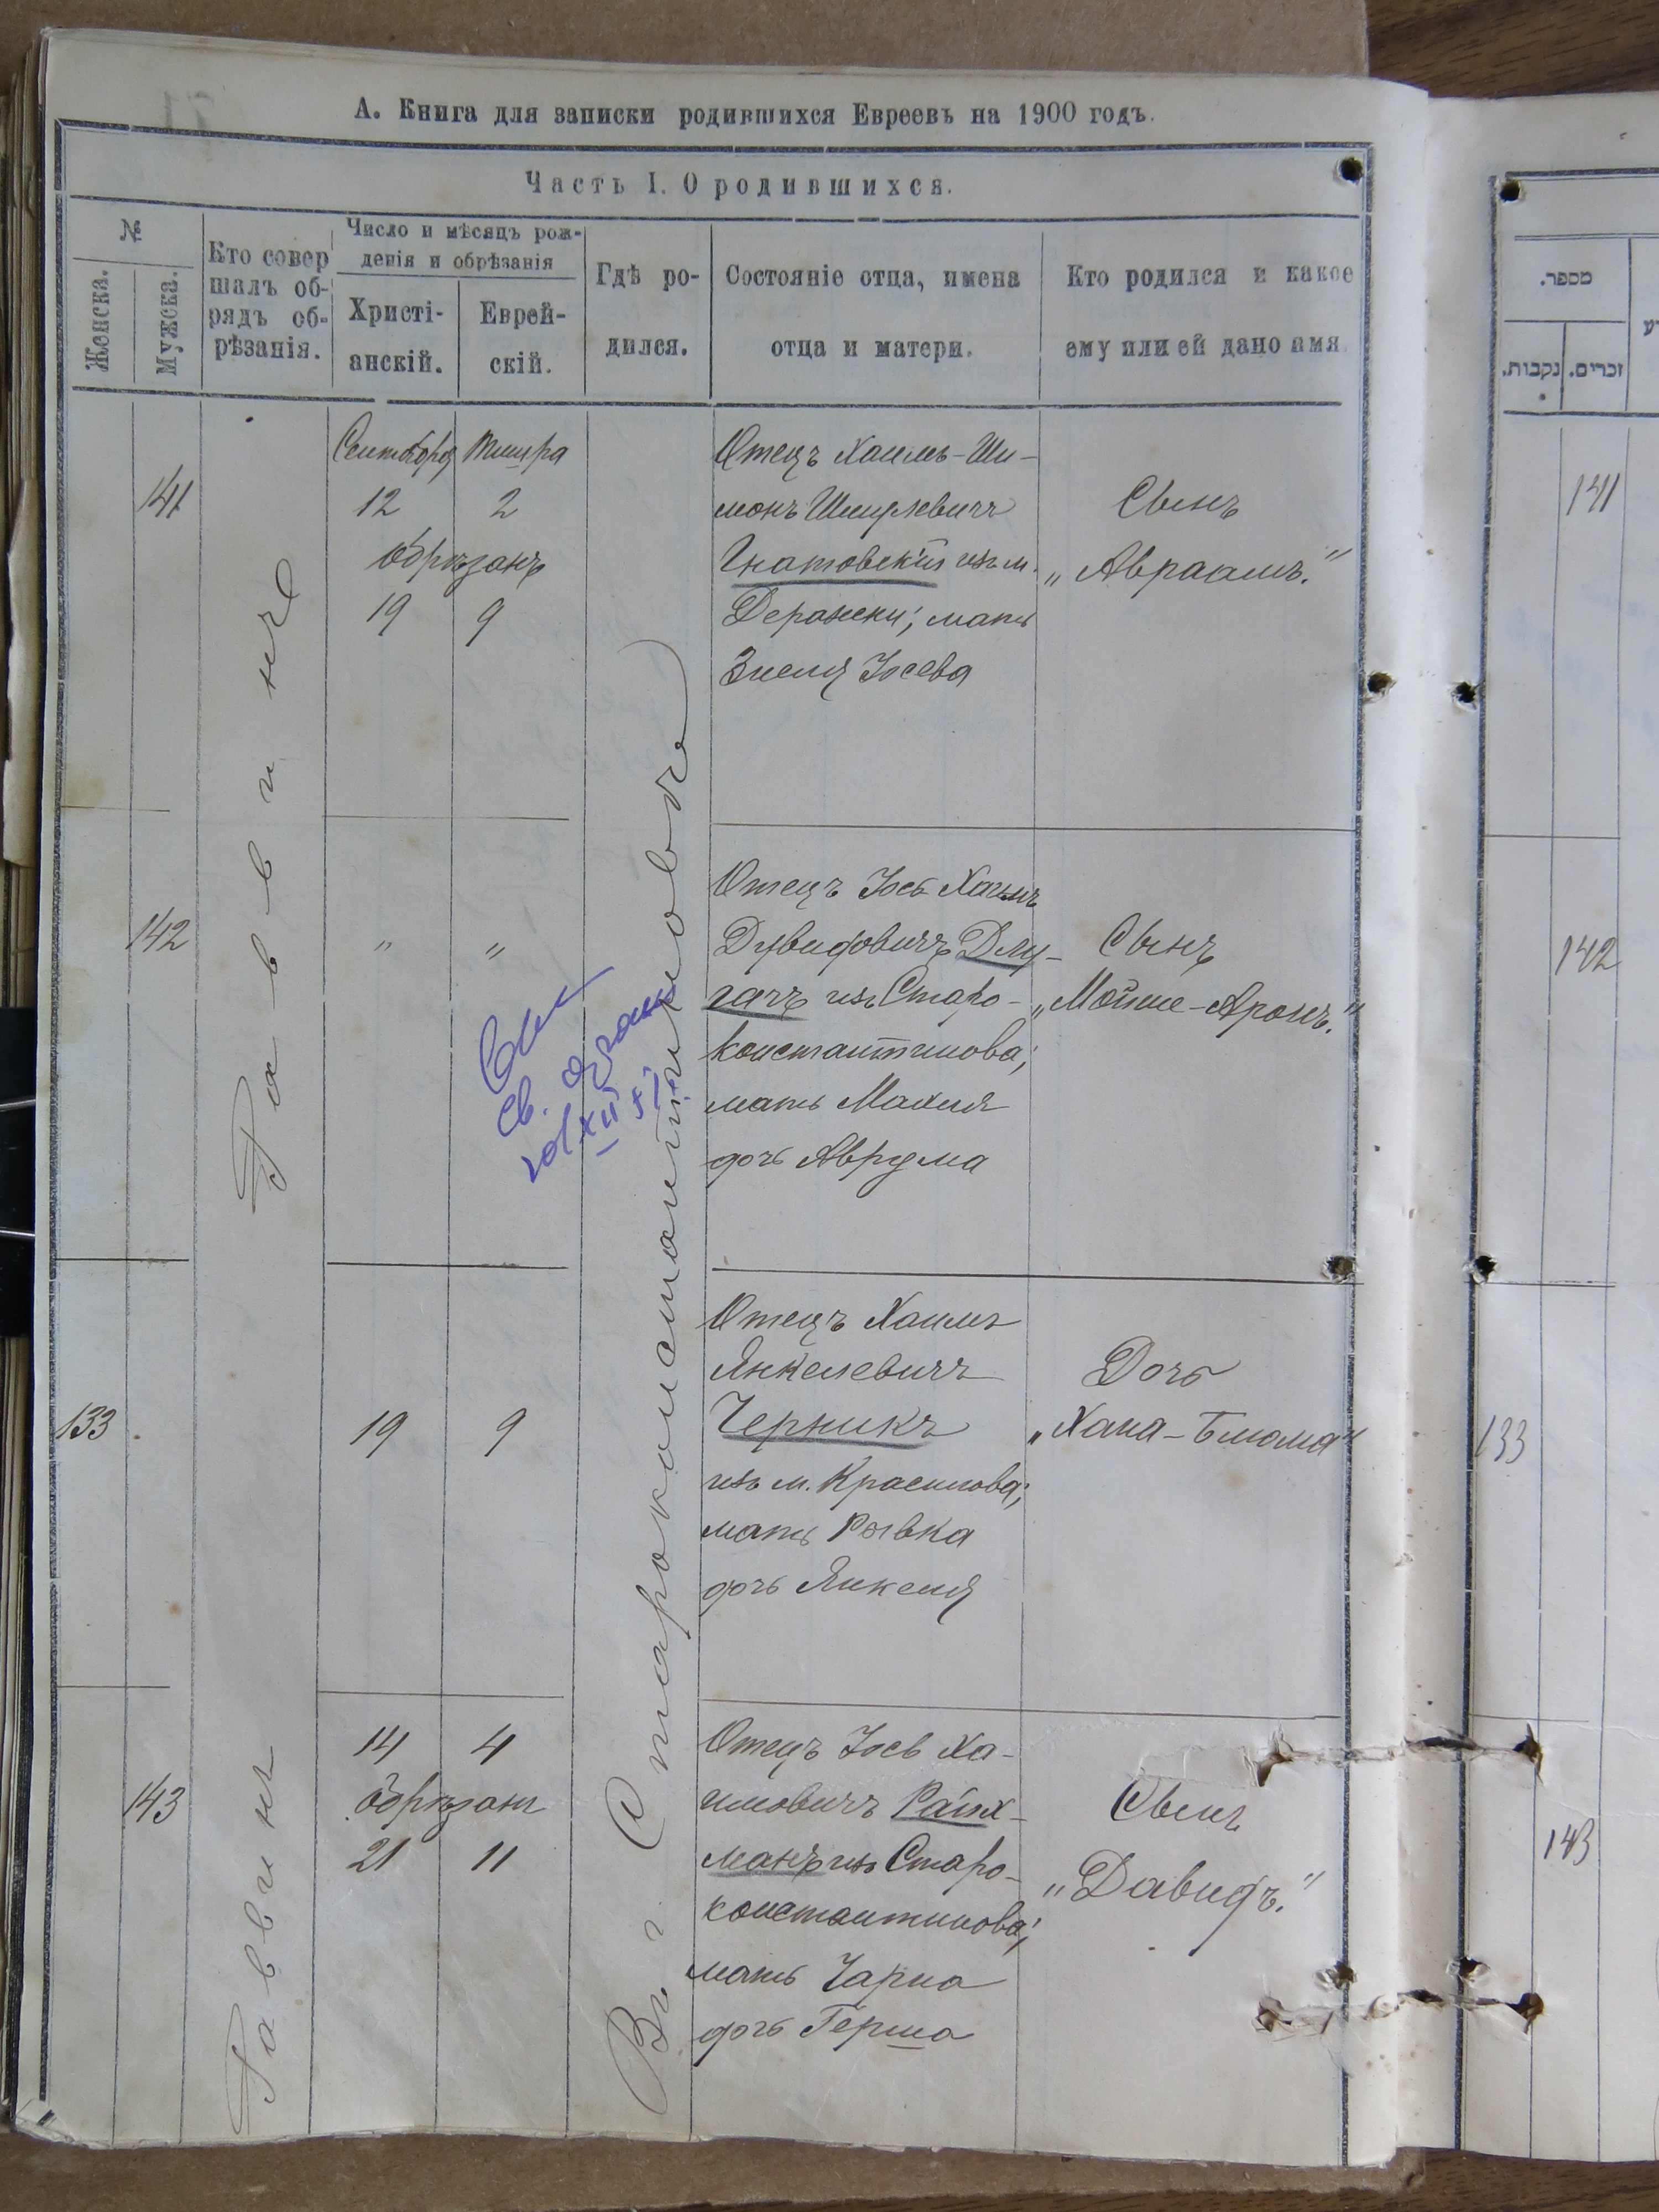 А. Книга для записки родившихся Евреевъ на 1900 годъ.
Часть I. О родившихся.
№
Женска.
Мужеска.
Кто совер
шалъ об-
рядъ об-
рѣзанія.
Число и мѣсяцъ рож-
денія и обрѣзанія
Христі-
анскій.
Еврей-
скій.
Гдѣ ро-
дился.
Состояніе отца, имена
отца и матери.
Кто родился и какое
ему или ей дано имя.
Раввинъ
Въ г. Староконстантиновѣ
141
Сентября Тишра
12 2
обрѣзанъ
19 9
Отецъ Хаимъ-Ши-
монъ Шмулевичъ
Гнатовскій изъ м.
Деражни; мать
Зиселя Іосева
Сынъ
„Авраамъ."
142
" "
Отецъ Іось Хаимъ
Дувидовичъ Длу-
гачъ изъ Старо-
константинова;
мать Махля
дочь Аврума
Сынъ
„Мойше-Аронъ."
133
19 9
Отецъ Хаимъ
Янкелевичъ
Черникъ
изъ м. Красилова;
мать Ривка
дочь Янкеля
Дочь
„Хана-Блюма"
Раввинъ
143
14 4
обрѣзанъ
21 11
Отецъ Іось Ха-
имовичъ Райх-
манъ изъ Старо-
константинова;
мать Чарна
дочь Герша
Сынъ
„Давидъ."
מספר.
נקבות.
זכרים.
141
142
133
143